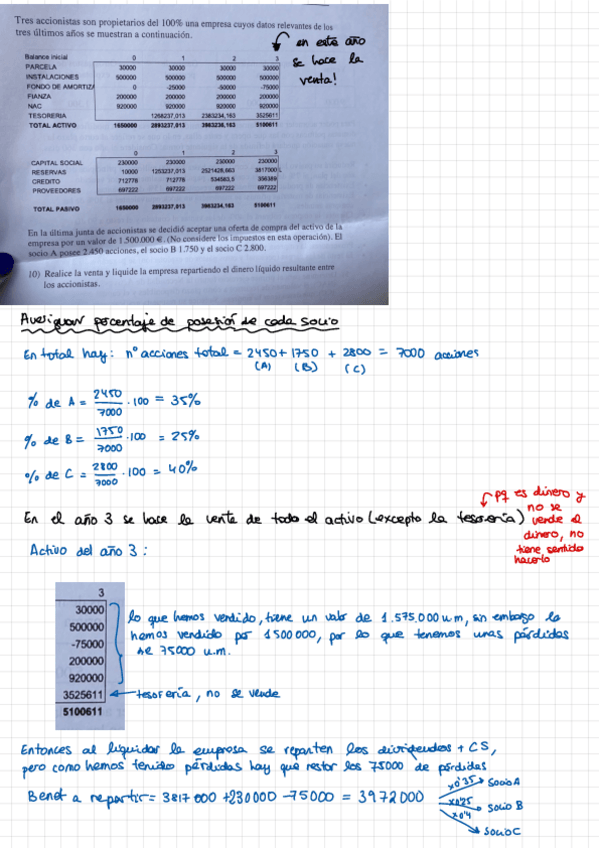 Tres accionistas son propietarios del 100% una empresa cuyos datos relevantes de los
tres últimos años se muestran a continuación.
en este año
se hace la
venta!
Balance inicial 0 1 2 3
PARCELA 30000 30000 30000 30000
INSTALACIONES 500000 500000 500000 500000
FONDO DE AMORTIZA 0 -25000 -50000 -75000
FIANZA 200000 200000 200000 200000
NAC 920000 920000 920000 920000
TESORERIA 1268237,013 2383234,163 3525611
TOTAL ACTIVO 1650000 2893237,013 3983234,163 5100611
0 1 2 3
CAPITAL SOCIAL 230000 230000 230000 230000
RESERVAS 10000 1253237,013 3817000
CREDITO 712778 712778 534583,5 356389
PROVEEDORES 697222 697222 697222 697222
TOTAL PASIVO 1650000 2893237,013 3983234,163 5100611
En la última junta de accionistas se decidió aceptar una oferta de compra del activo de la
empresa por un valor de 1.500.000 €. (No considere los impuestos en esta operación). El
socio A posee 2.450 acciones, el socio B 1.750 y el socio C 2.800.
10) Realice la venta y liquide la empresa repartiendo el dinero líquido resultante entre
los accionistas.
Averiguar porcentaje de posesión de cada socio
En total hay: nº acciones total = 2450 + 1750 + 2800 = 7000 acciones
(A) (B) (C)
% de A = 2450/7000 · 100 = 35%
% de B = 1750/7000 · 100 = 25%
% de C = 2800/7000 · 100 = 40%
pq es dinero y
no se
vende el
dinero, no
tiene sentido
hacerlo
En el año 3 se hace la venta de todo el activo (excepto la tesorería)
Activo del año 3:
3
30000
500000
-75000
200000
920000
3525611
5100611
lo que hemos vendido, tiene un valor de 1.575.000 u.m, sin embargo lo
hemos vendido por 1500000, por lo que tenemos unas pérdidas
de 75000 u.m.
tesorería, no se vende
Entonces al liquidar la empresa se reparten los dividendos + CS,
pero como hemos tenido pérdidas hay que restar los 75000 de pérdidas
Benef a repartir = 3817000 + 230000 - 75000 = 3972000
x0'35 socio A
x0'25 socio B
x0'4 socio C